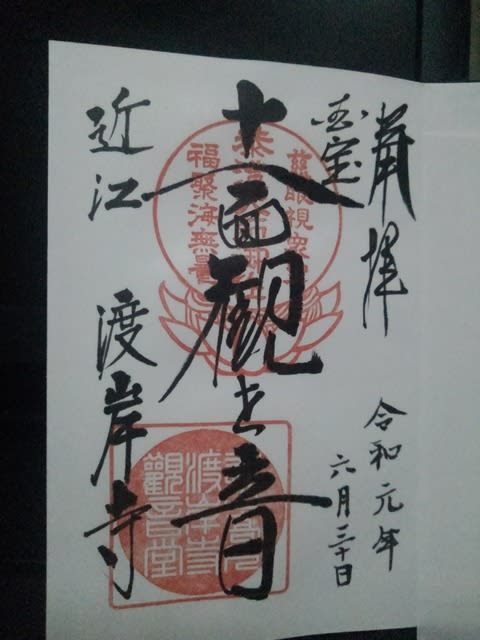 奉拝
令和元年
六月三十日
国宝
十一面観世音
近江 渡岸寺
慈眼視衆生
福聚海無量
渡岸寺
觀音堂